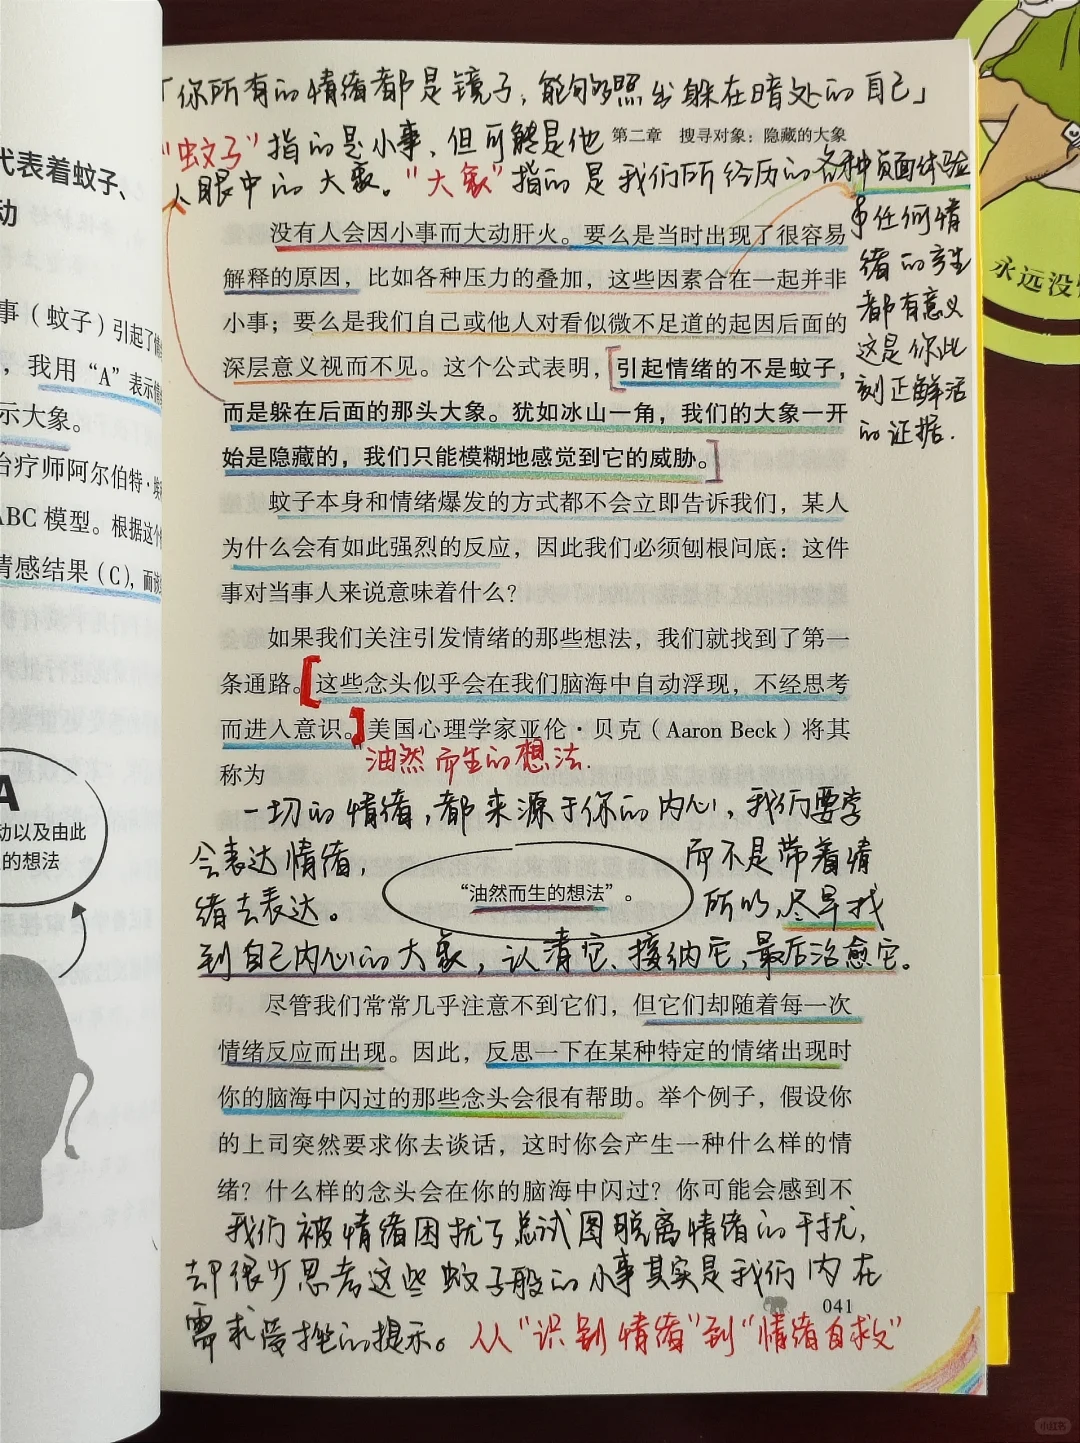 「你所有的情绪都是镜子，能够照出躲在暗处的自己」
“蚊子”指的是小事，但可能是他
第二章 搜寻对象：隐藏的大象
人眼中的大象。“大象”指的是我们所经历的各种负面体验
没有人会因小事而大动肝火。要么是当时出现了很容易
解释的原因，比如各种压力的叠加，这些因素合在一起并非
小事；要么是我们自己或他人对看似微不足道的起因后面的
深层意义视而不见。这个公式表明，引起情绪的不是蚊子，
而是躲在后面的那头大象。犹如冰山一角，我们的大象一开
始是隐藏的，我们只能模糊地感觉到它的威胁。
任何情
绪的产生
都有意义
这是你此
刻正鲜活
的证据.
蚊子本身和情绪爆发的方式都不会立即告诉我们，某人
为什么会有如此强烈的反应，因此我们必须刨根问底：这件
事对当事人来说意味着什么？
如果我们关注引发情绪的那些想法，我们就找到了第一
条通路。这些念头似乎会在我们脑海中自动浮现，不经思考
而进入意识。美国心理学家亚伦·贝克（Aaron Beck）将其
称为
油然而生的想法.
一切的情绪，都来源于你的内心，我们要学
会表达情绪，而不是带着情
“油然而生的想法”。
绪去表达。所以，尽早找
到自己内心的大象，认清它、接纳它，最后治愈它。
尽管我们常常几乎注意不到它们，但它们却随着每一次
情绪反应而出现。因此，反思一下在某种特定的情绪出现时
你的脑海中闪过的那些念头会很有帮助。举个例子，假设你
的上司突然要求你去谈话，这时你会产生一种什么样的情
绪？什么样的念头会在你的脑海中闪过？你可能会感到不
我们被情绪困扰了总试图脱离情绪的干扰，
却很少思考这些蚊子般的小事其实是我们内在
041
需求受挫的提示。从“识别情绪”到“情绪自救”
代表着蚊子、
动
事（蚊子）引起了情
，我用“A”表示情
示大象。
治疗师阿尔伯特·埃
ABC模型。根据这个
情感结果（C），而
A
动以及由此
的想法
永远没
小红书